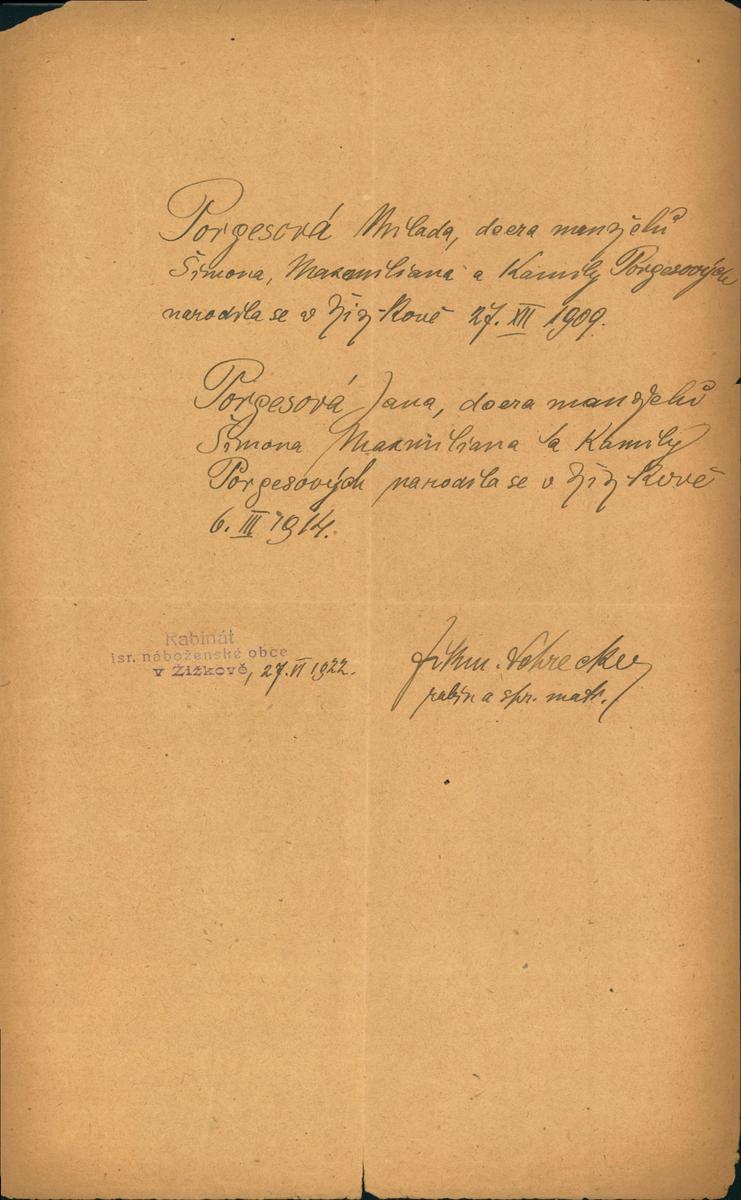 Porgesová Milada, dcera manželů
Šimona, Maxmiliana a Kamily Porgesových
narodila se v Žižkově 27. XII 1909.
Porgesová Jana, dcera manželů
Šimona Maxmiliana a Kamily
Porgesových narodila se v Žižkově
6. III 1914.
Rabinát
isr. náboženské obce
v Žižkově, 27. VI 1922.
Schrecker
rabín a spr. matr.